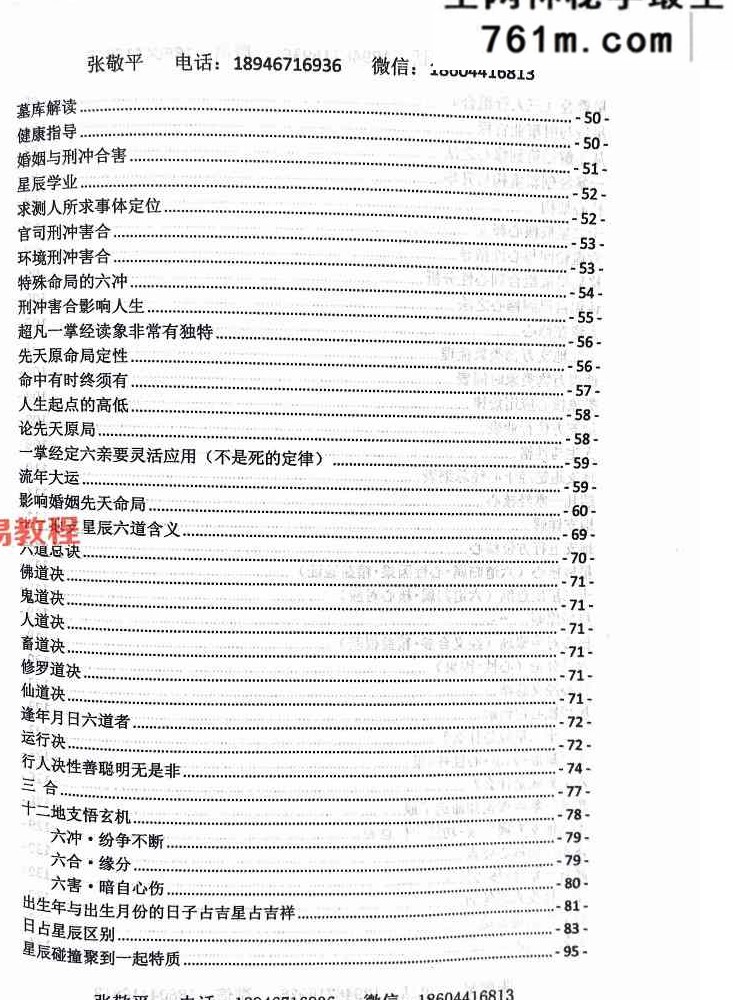 761m.com
张敬平 电话：18946716936 微信：18604416813
墓库解读 - 50 -
健康指导 - 50 -
婚姻与刑冲合害 - 51 -
星辰学业 - 52 -
求测人所求事体定位 - 52 -
官司刑冲害合 - 53 -
环境刑冲害合 - 53 -
特殊命局的六冲 - 54 -
刑冲害合影响人生 - 55 -
超凡一掌经读象非常有独特 - 56 -
先天原命局定性 - 56 -
命中有时终须有 - 57 -
人生起点的高低 - 58 -
论先天原局 - 58 -
一掌经定六亲要灵活应用（不是死的定律） - 59 -
流年大运 - 59 -
影响婚姻先天命局 - 60 -
星辰六道含义 - 69 -
易教程
六道总诀 - 70 -
佛道决 - 71 -
鬼道决 - 71 -
人道决 - 71 -
畜道决 - 71 -
修罗道决 - 71 -
仙道决 - 71 -
逢年月日六道者 - 72 -
运行决 - 72 -
行人决性善聪明无是非 - 74 -
三 合 - 77 -
十二地支悟玄机 - 78 -
六冲·纷争不断 - 79 -
六合·缘分 - 79 -
六害·暗自心伤 - 80 -
出生年与出生月份的日子占吉星占吉祥 - 81 -
日占星辰区别 - 83 -
星辰碰撞聚到一起特质 - 95 -
张敬平 电话：18946716936 微信：18604416813